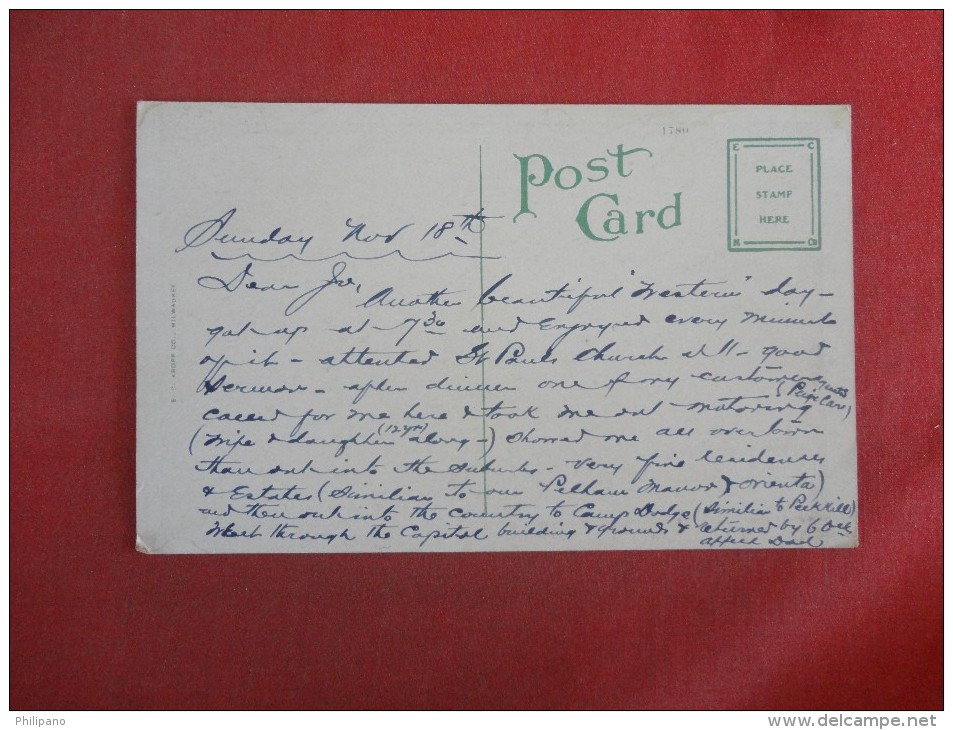 1780
Post
Card
E C
PLACE
STAMP
HERE
K Co
E. C. KROPP CO., MILWAUKEE
Sunday Nov 18th
Dear Jr,
Another beautiful "Western" day -
got up at 7 30 and Enjoyed every minute
of it - attended St Pauls Church at 11 - good
sermon - after dinner one of my customers
called for me here & took me out motoring (Paige Car)
(wife & daughter (12 yr) along -) Showed me all over town
then out into the suburbs - very fine residences
& Estates (Similiar to our Pelham Manor & Orienta)
and then out into the country to Camp Dodge (Similiar to Peekskill)
Went through the Capitol building & grounds & returned by 6 Ock
Affec Dad
Philipano
www.delcampe.net